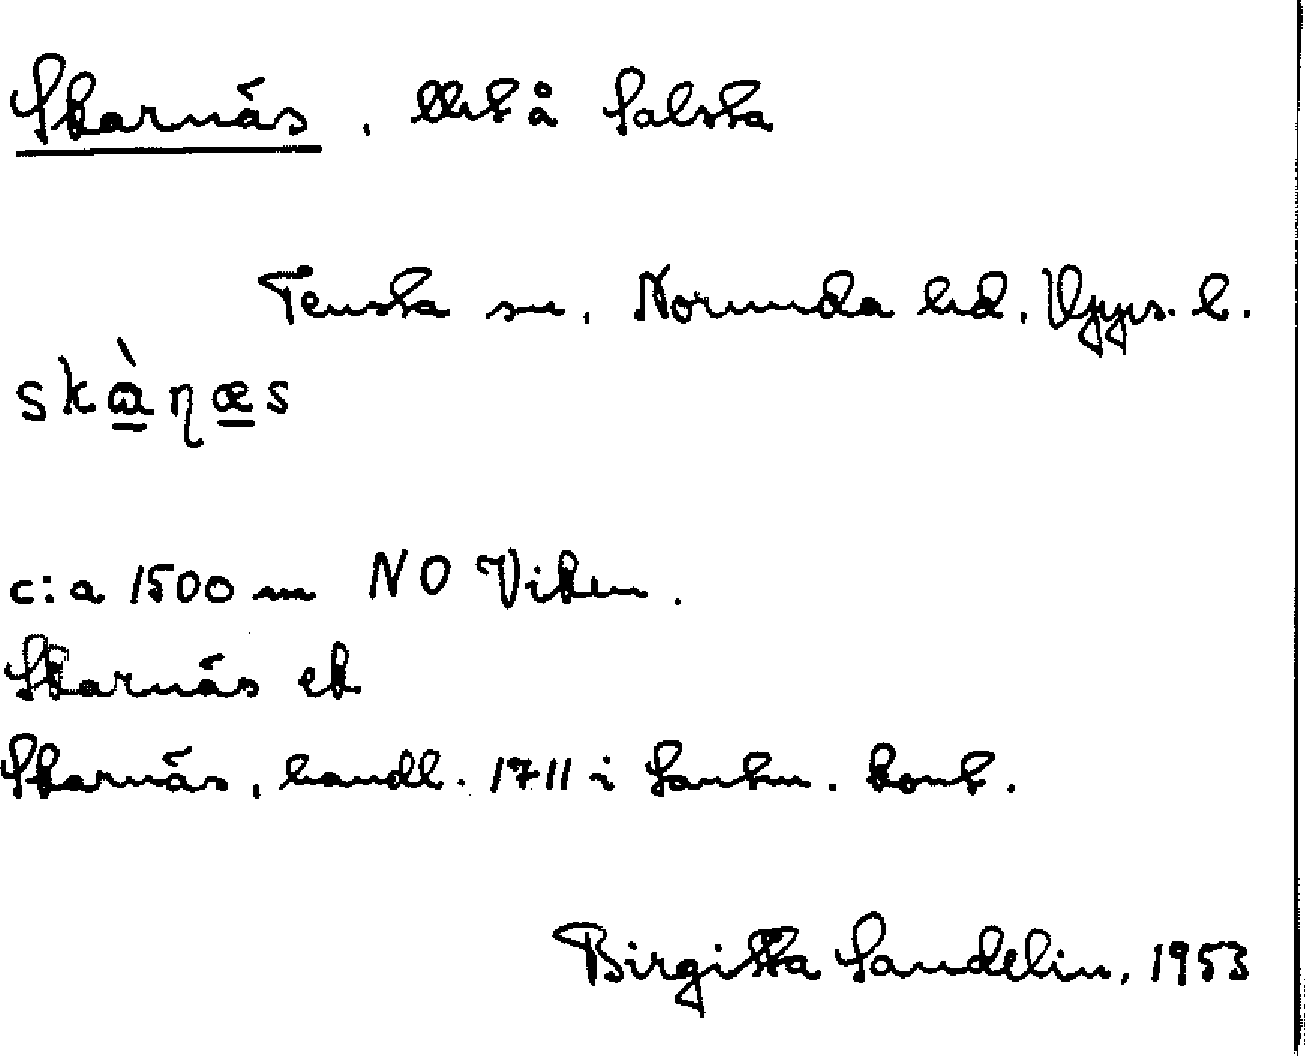 Skarnäs, llht å Salsta
Tensta sn, Norunda hd. Upps. l.
skɑ̀ɳæs
c:a 1500 m NO Viken.
Skarnäs ek
Skarnäs, handl. 1711 i Lantm. kont.
Birgitta Sandelin, 1953